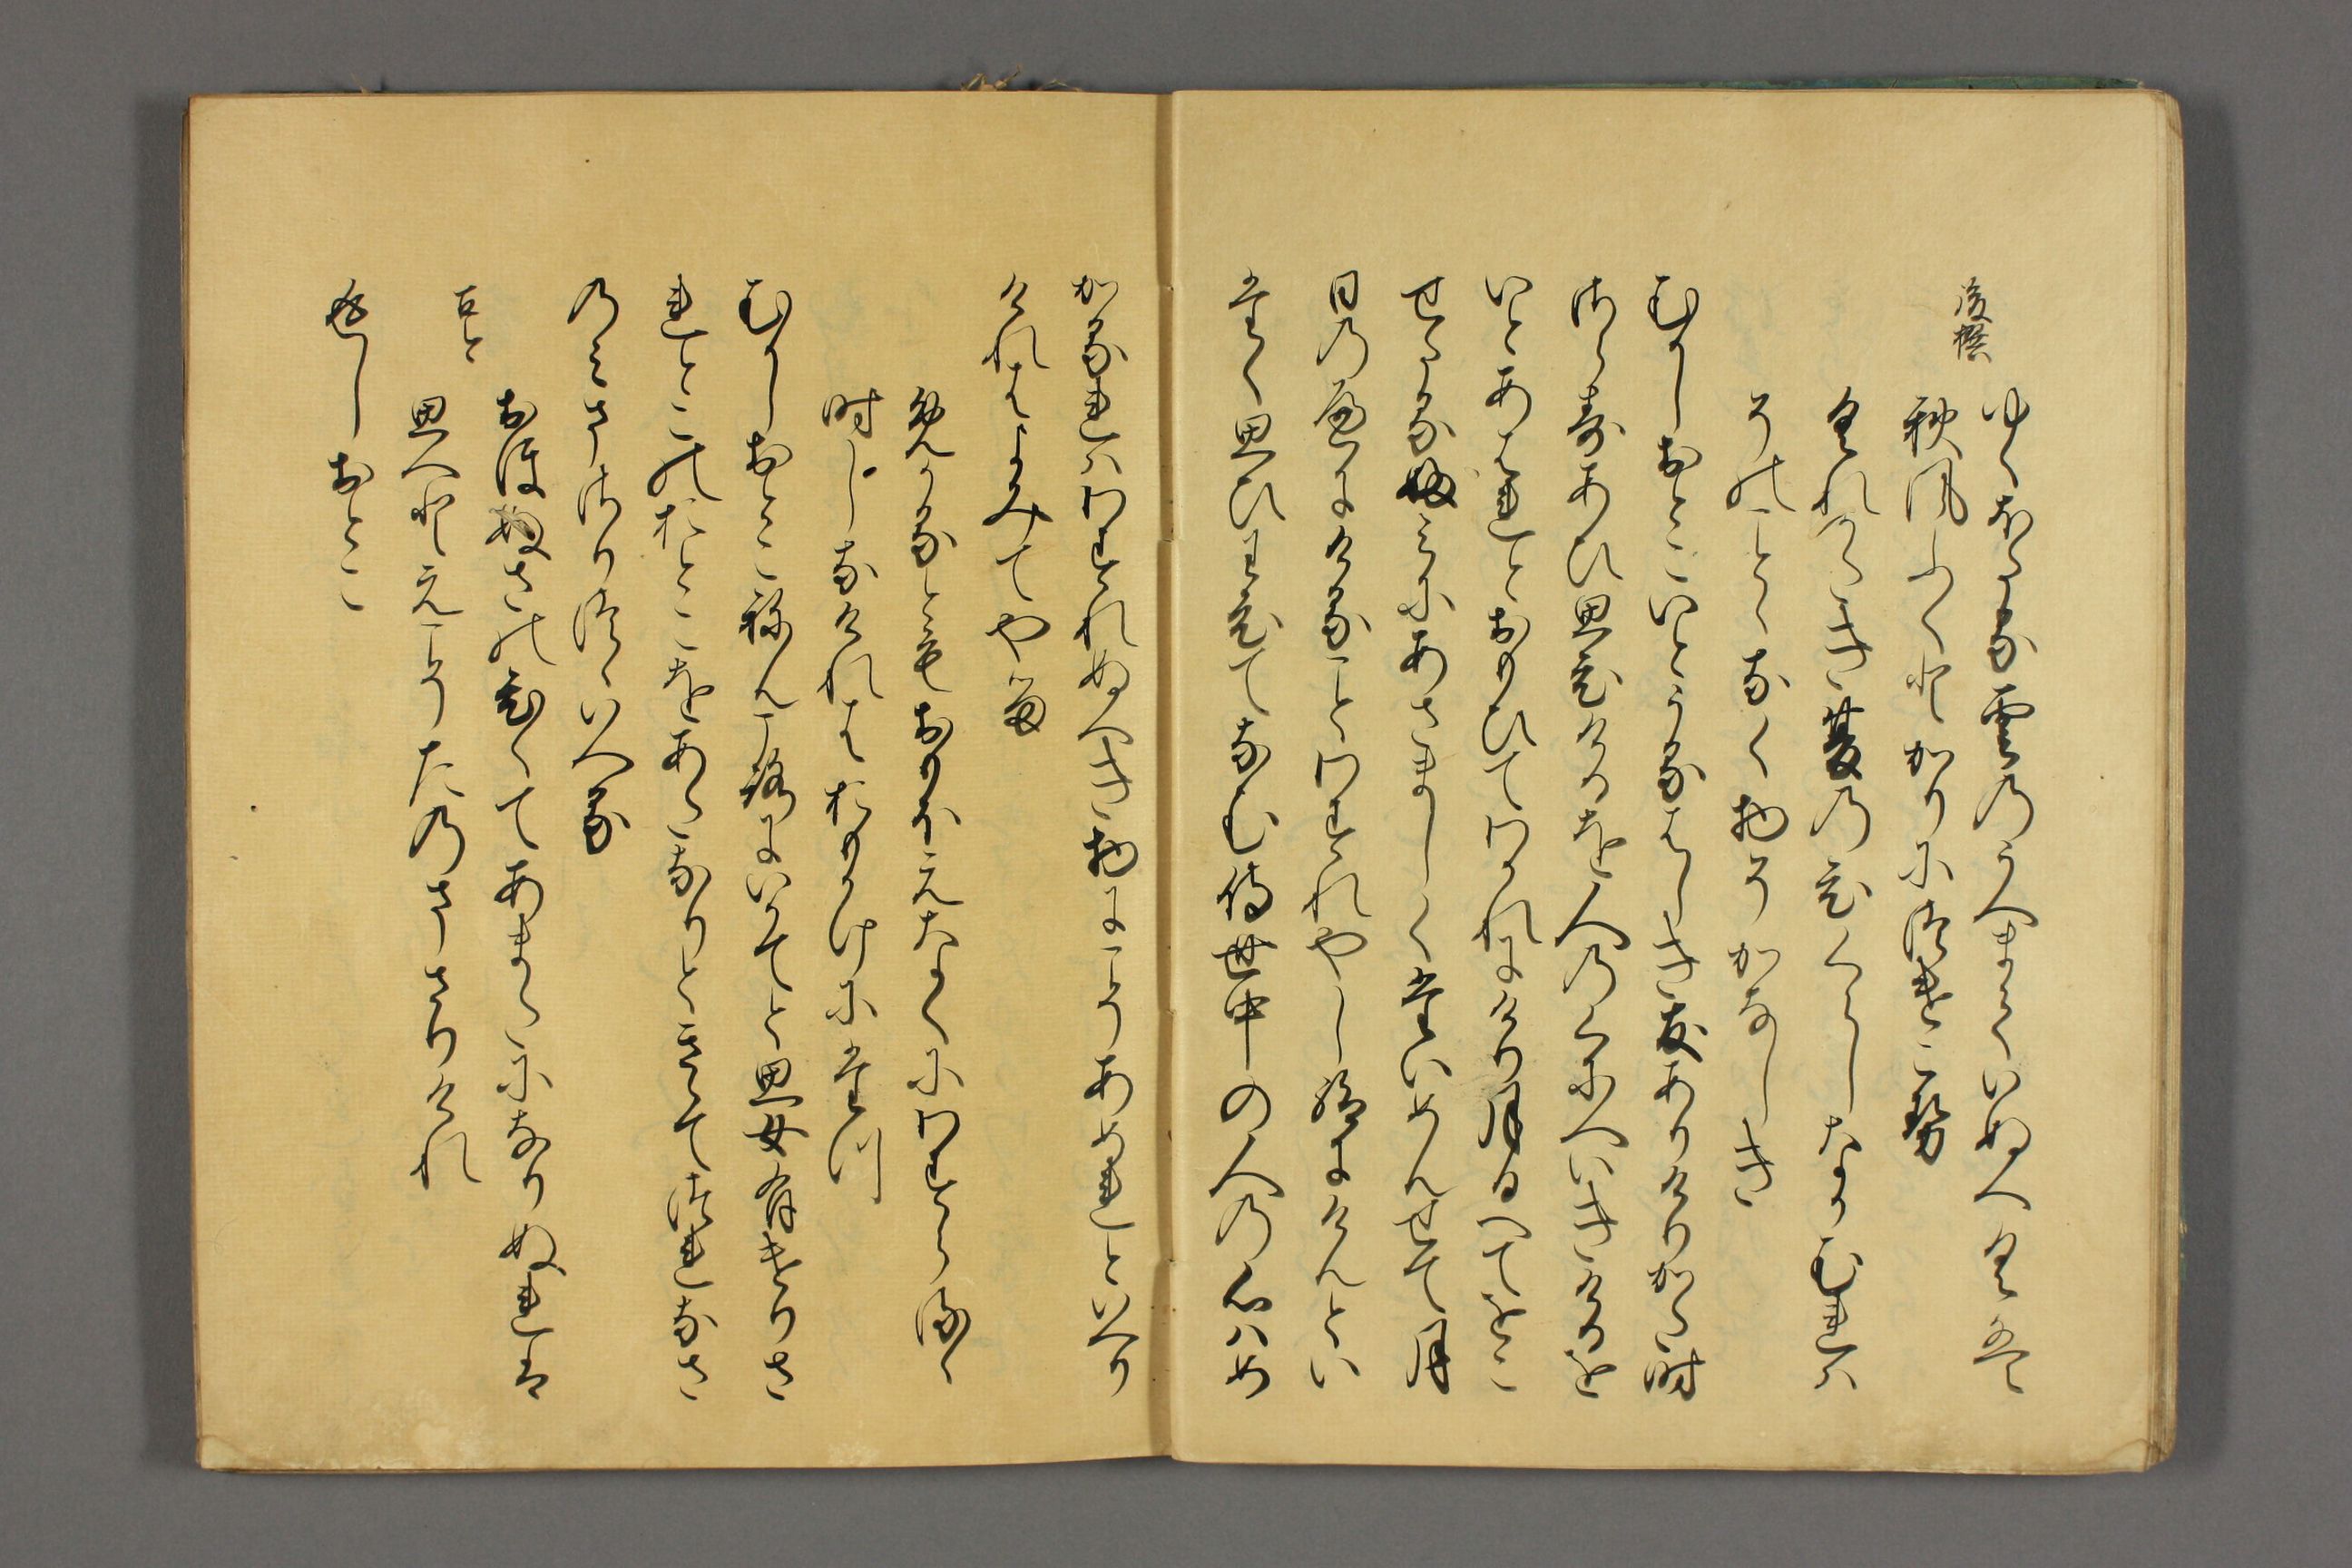 後撰
ゆくほたる雲のうへまていぬへくは
秋風ふくとかりにつけこせ
くれかたき夏の日くらしなかむれは
そのことゝなく物そかなしき
むかしおとこいとうるはしき友ありけりかた時
さらすあひ思ひけるを人のくにへいきけるを
いとあはれとおもひてわかれにけり月日へてをこ
せたるふみにあさましくたいめんせて月
日のへにけることわすれやし給にけんとい
たく思ひわひてなむ侍世中の人の心はめ
かるれはわすれぬへき物にこそあめれといへり
けれはよみてやる
めかるともおもほえなくにわすらるゝ
時しなけれはおもかけにたつ
むかしおとこねんころにいかてと思女有けりさ
れとこのおとこをあたなりときゝてつれなさ
のみまさりつゝいへる
おほぬさのひくてあまたになりぬれは
古今
思へとえこそたのまさりけれ
返しおとこ